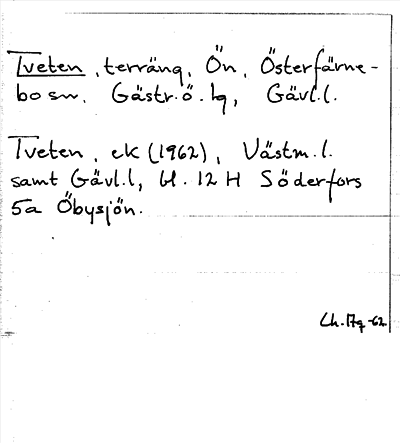 Tveten, terräng, Ön, Österfärne-
bo sn. Gästr.ö.tg, Gävl.l.
Tveten, ek (1962), Västm.l.
samt Gävl.l, bl. 12 H Söderfors
5a Öbysjön.